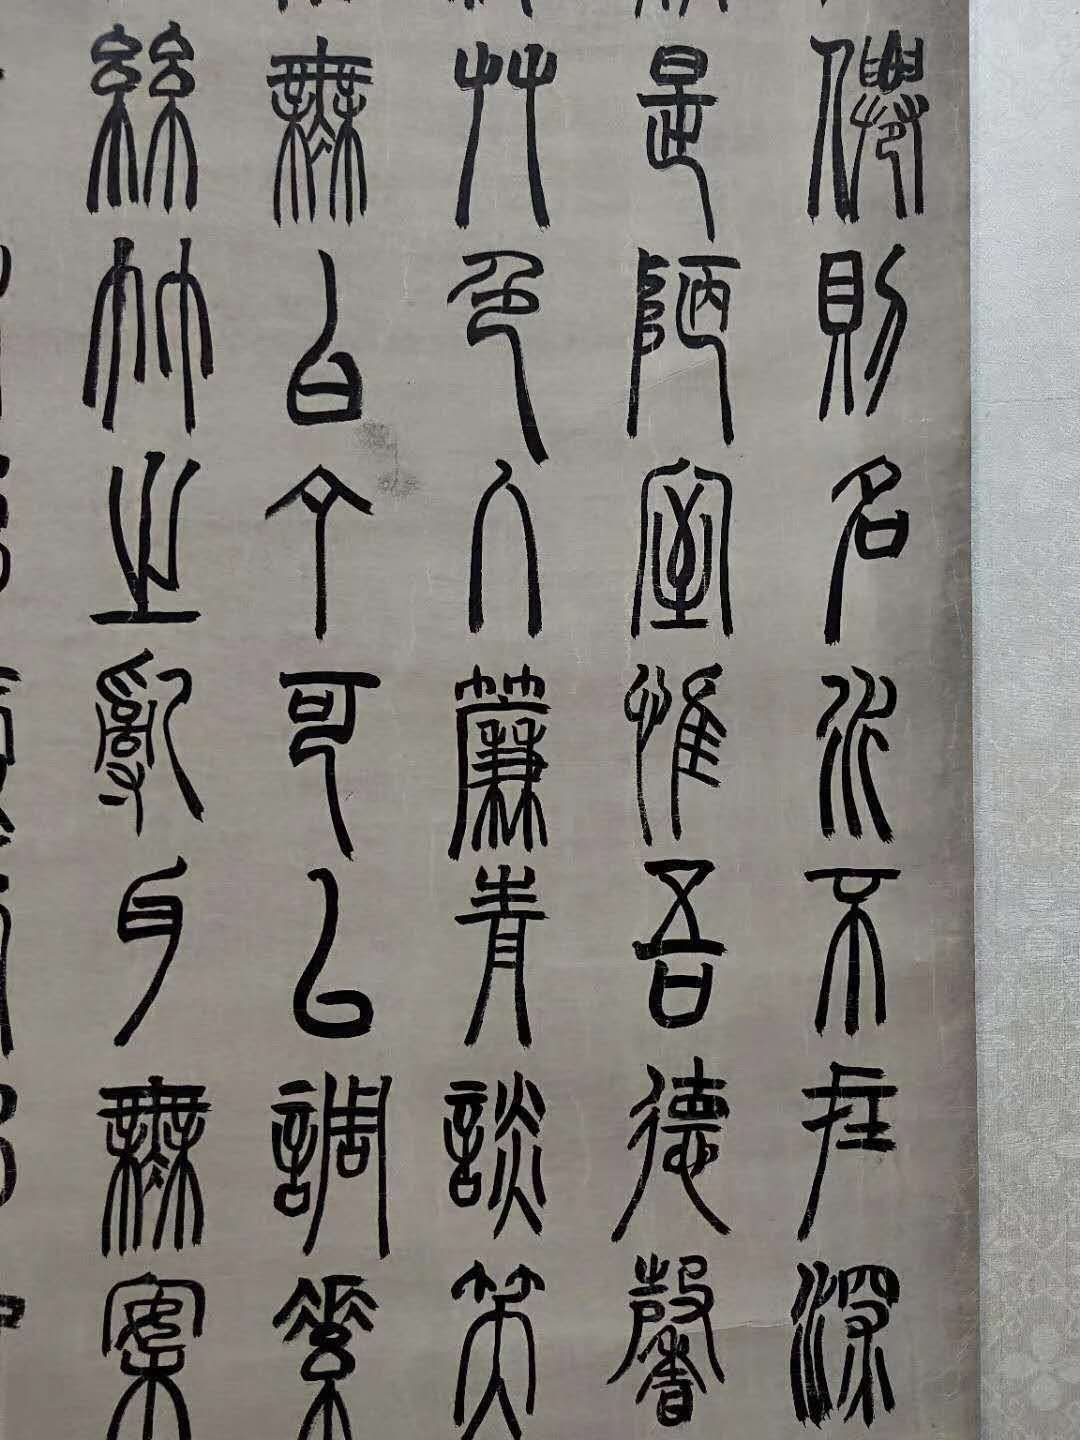 僊則名水不在深
是陋室惟吾德馨
艸色入簾青談笑
無白丁可以調素
絲竹之亂耳無案